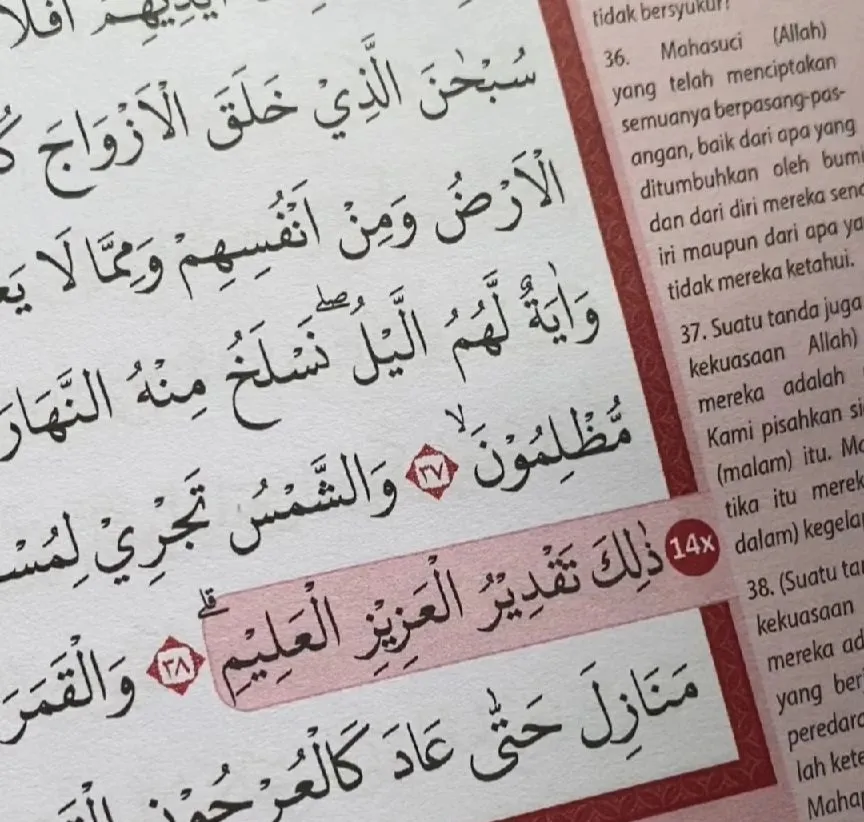 سُبْحٰنَ الَّذِيْ خَلَقَ الْاَزْوَاجَ
الْاَرْضُ وَمِنْ اَنْفُسِهِمْ وَمِمَّا لَا
وَاٰيَةٌ لَّهُمُ الَّيْلُ ۖنَسْلَخُ مِنْهُ النَّهَارَ
مُّظْلِمُوْنَۙ ٣٧ وَالشَّمْسُ تَجْرِيْ
14x ذٰلِكَ تَقْدِيْرُ الْعَزِيْزِ الْعَلِيْمِۗ ٣٨ وَالْقَمَرَ
مَنَازِلَ حَتّٰى عَادَ كَالْعُرْجُوْنِ
tidak bersyukur?
36. Mahasuci (Allah)
yang telah menciptakan
semuanya berpasang-pas-
angan, baik dari apa yang
ditumbuhkan oleh bumi
dan dari diri mereka send
iri maupun dari apa ya
tidak mereka ketahui.
37. Suatu tanda juga
kekuasaan Allah)
mereka adalah
Kami pisahkan si
(malam) itu. Ma
tika itu merek
dalam) kegela
38. (Suatu ta
kekuasaan
mereka ad
yang ber
peredara
lah kete
Mahap